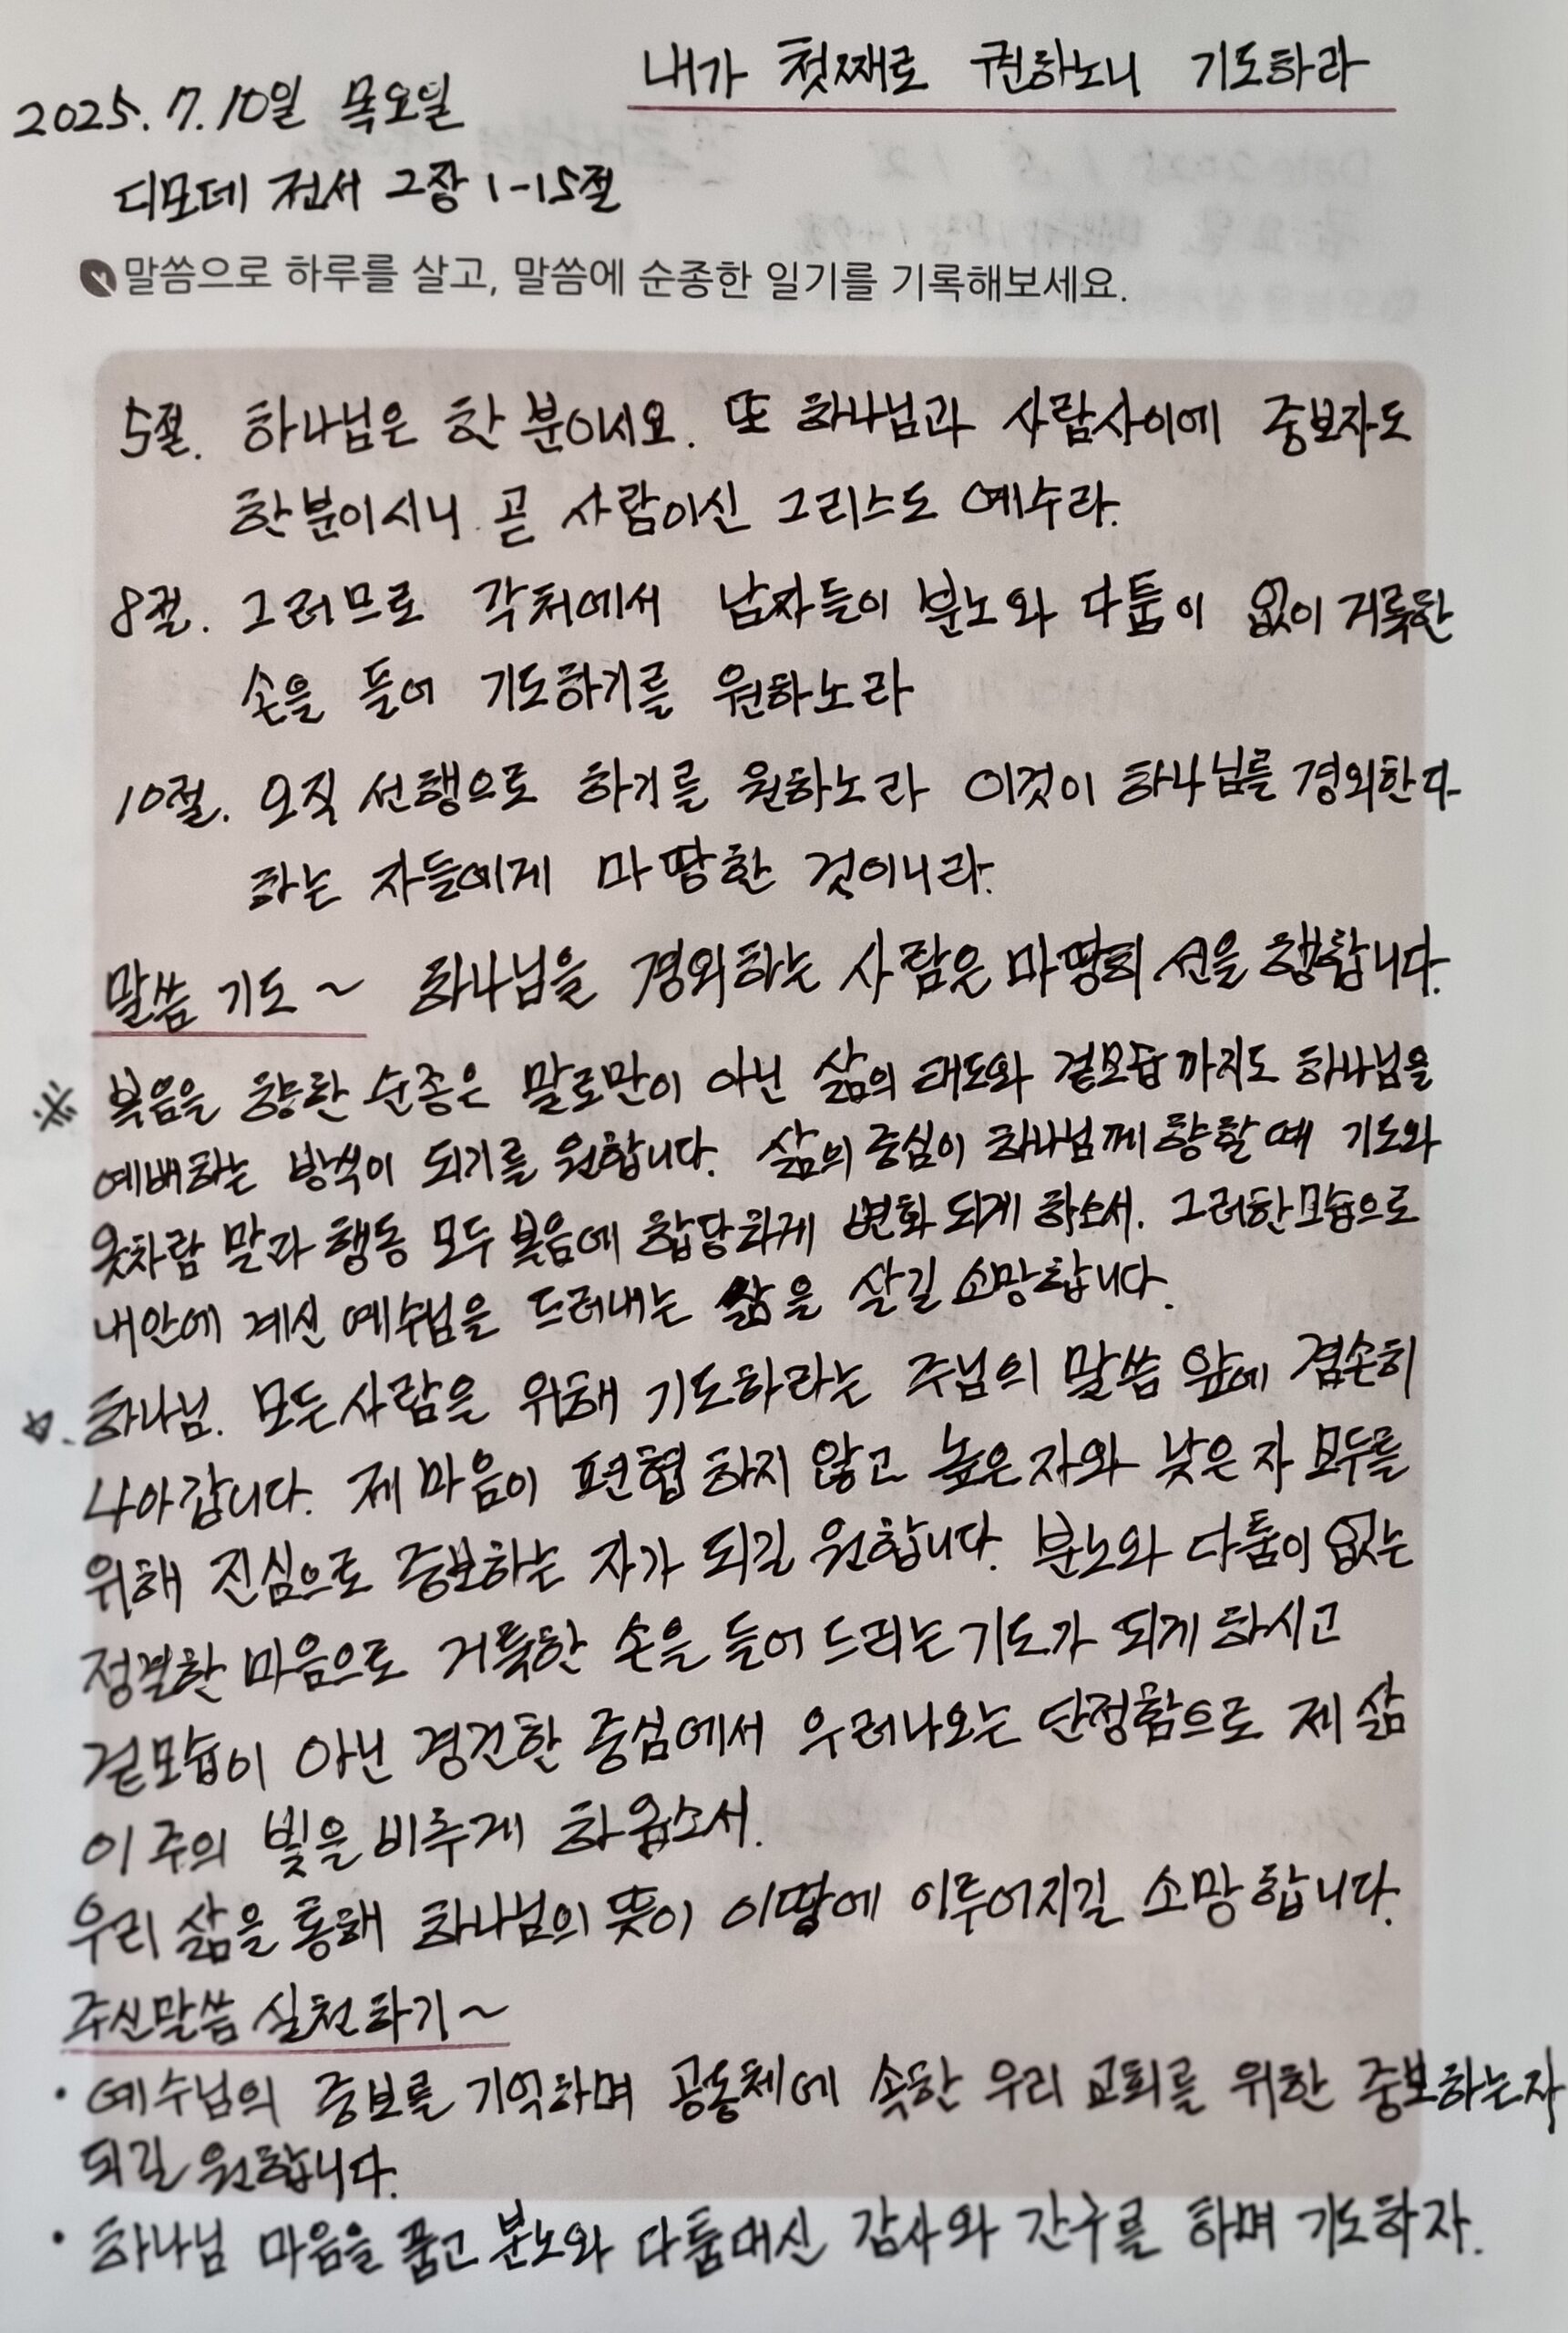 내가 첫째로 권하노니 기도하라
2025. 7. 10일 목요일
디모데 전서 2장 1-15절
말씀으로 하루를 살고, 말씀에 순종한 일기를 기록해보세요.
5절. 하나님은 한 분이시요. 또 하나님과 사람사이에 중보자도
한분이시니 곧 사람이신 그리스도 예수라.
8절. 그러므로 각처에서 남자들이 분노와 다툼이 없이 거룩한
손을 들어 기도하기를 원하노라
10절. 오직 선행으로 하기를 원하노라 이것이 하나님를 경외한다
하는 자들에게 마땅한 것이니라.
말씀 기도 ~ 하나님을 경외하는 사람은 마땅히 선을 행합니다.
※ 복음을 향한 순종은 말로만이 아닌 삶의 태도와 겉모습까지도 하나님을
예배하는 방식이 되기를 원합니다. 삶의 중심이 하나님께 향할 때 기도와
옷차람 말과 행동 모두 복음에 합당하게 변화 되게 하소서. 그러한모습으로
내안에 계신 예수님을 드러내는 삶을 살길 소망합니다.
☆. 하나님. 모든사람을 위해 기도하라는 주님의 말씀 앞에 겸손히
나아갑니다. 제 마음이 편협 하지 않고 높은자와 낮은 자 모두를
위해 진심으로 중보하는 자가 되길 원합니다. 분노와 다툼이 없는
정결한 마음으로 거룩한 손을 들어 드리는 기도가 되게 하시고
겉모습이 아닌 경건한 중심에서 우러나오는 단정함으로 제 삶
이 주의 빛을 비추게 하옵소서.
우리 삶을 통해 하나님의 뜻이 이땅에 이루어지길 소망합니다.
주신말씀 실천하기~
· 예수님의 중보를 기억하며 공동체에 속한 우리 교회를 위한 중보하는자
되길 원합니다.
· 하나님 마음을 품고 분노와 다툼대신 감사와 간구를 하며 기도하자.